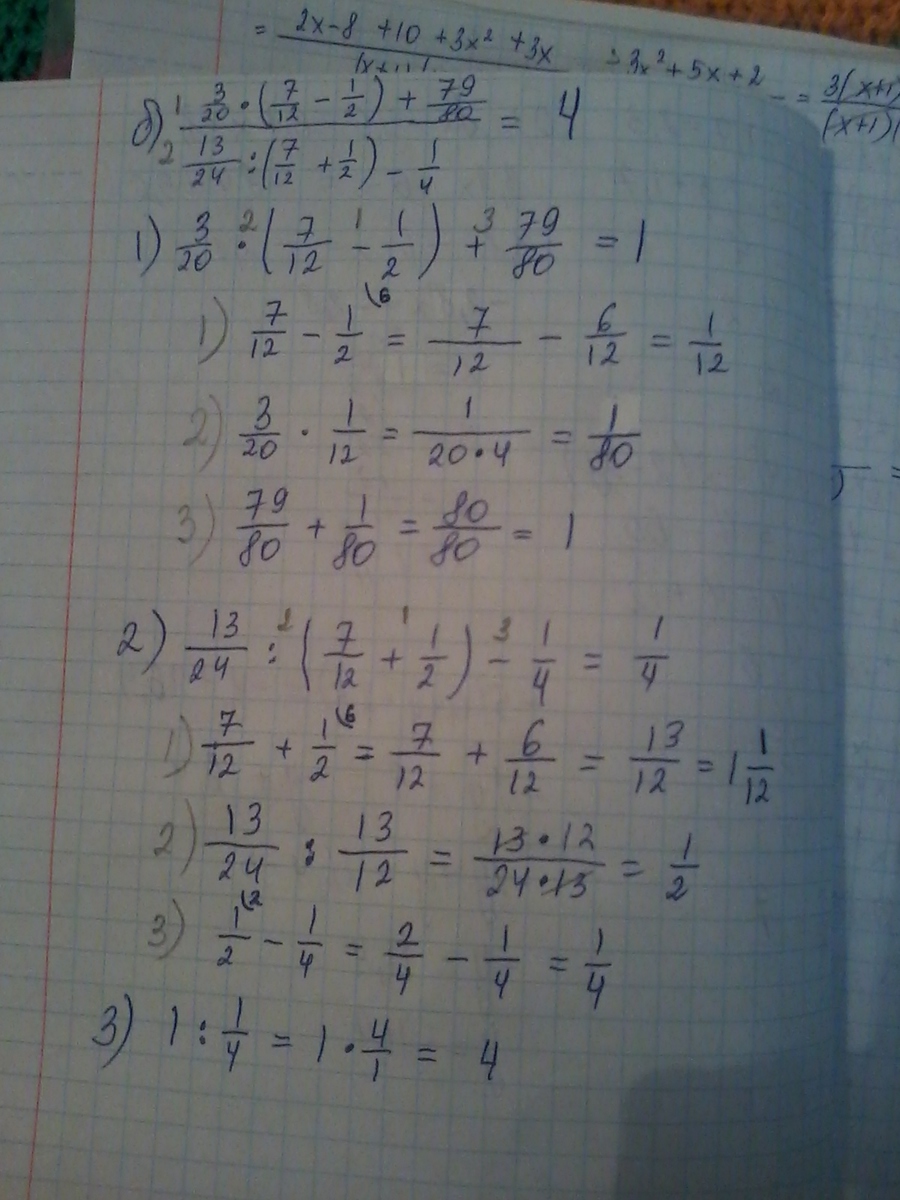 = (2x-8 +10 +3x² +3x)/(x+1) = 3x²+5x+2 = 3(x+1)/(x+1)
б) 1 3/20 · (7/12 - 1/2) + 79/80 = 4
2 13/24 : (7/12 + 1/2) - 1/4
1) 3/20 ·² (7/12 -¹ 1/2) +³ 79/80 = 1
1) 7/12 - 1/2 (6 = 7/12 - 6/12 = 1/12
2) 3/20 · 1/12 = 1/(20·4) = 1/80
3) 79/80 + 1/80 = 80/80 = 1
2) 13/24 :² (7/12 +¹ 1/2) -³ 1/4 = 1/4
1) 7/12 + 1/2 (6 = 7/12 + 6/12 = 13/12 = 1 1/12
2) 13/24 : 13/12 = (13·12)/(24·13) = 1/2
3) 1/2 (2 - 1/4 = 2/4 - 1/4 = 1/4
3) 1 : 1/4 = 1 · 4/1 = 4